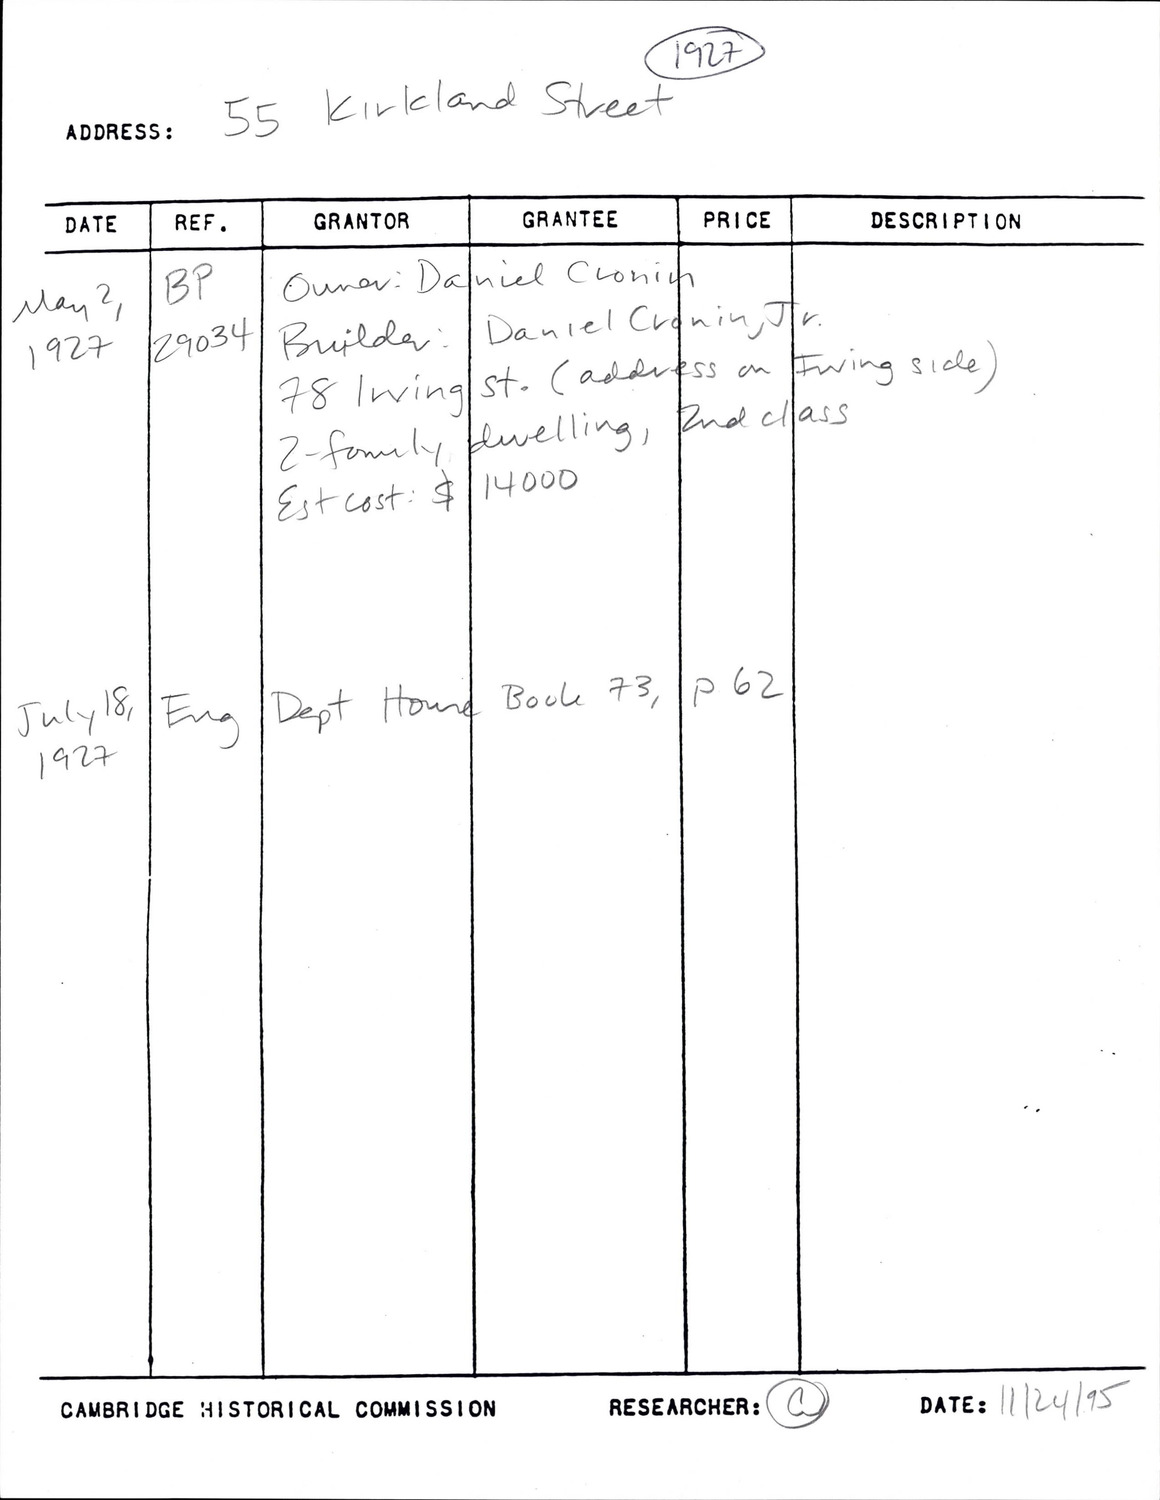 1927
ADDRESS: 55 Kirkland Street
DATE REF. GRANTOR GRANTEE PRICE DESCRIPTION
May 2, BP Owner: Daniel Cronin
1927 29034 Builder: Daniel Cronin, Jr.
78 Irving St. (address on Irving side)
2-family dwelling, 2nd class
Est cost: $ 14000
July 18, Eng Dept House Book 73, p 62
1927
CAMBRIDGE HISTORICAL COMMISSION RESEARCHER: DATE: 11/24/95